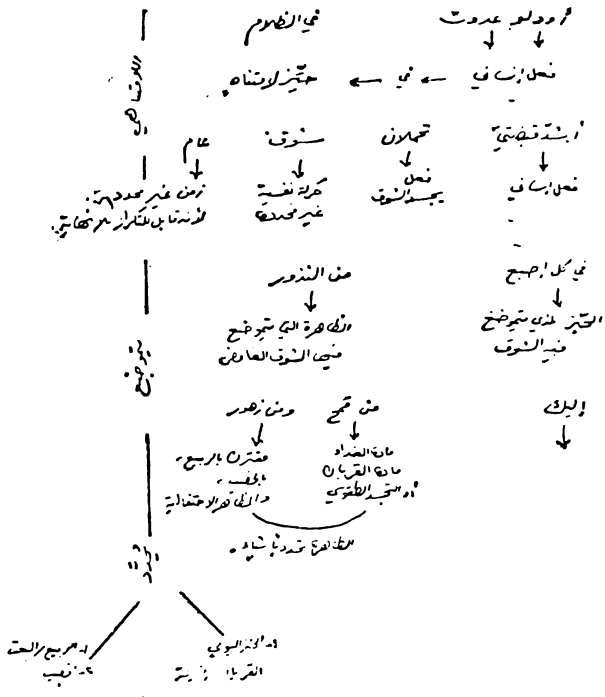 أودلو عدوت في الظلام
فعل إنساني ← في ← حيّز لامتناه.
اللامتناهي
أبشدّ قبضتيّ تحملان شوق عام
فعل إنساني فعل يجسد الشوق حركة نفسية غير محددة زمن غير محدد
لأنه قابل للتكرار
في كل إصبع من النذور
الحيّز الذي يتموضع فيه الشوق
الظاهرة التي يتموضع فيها الشوق الغامض
يتموضع
إليك من قمح ومن زهور
مادة الغذاء
مادة القربان
أو التجسد الطقوسي
مقترن بالربيع،
بالخصب،
والظاهر الاحتفالية
الظاهرة تحدد بأشياء.
يتحدّد
١- الخبز اليومي
القربان
١- الربيع/البعث
٢- الخصب